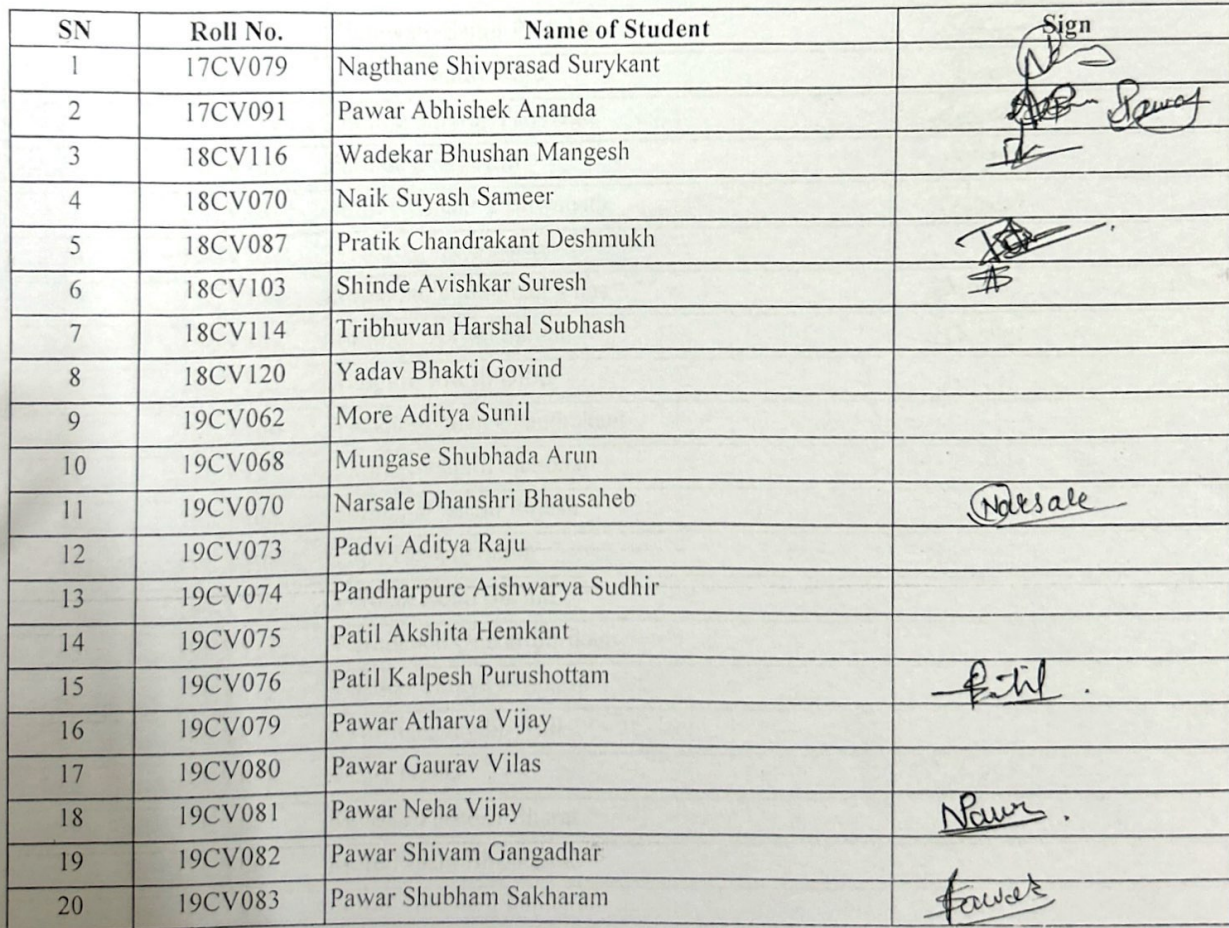 SN Roll No. Name of Student Sign
1 17CV079 Nagthane Shivprasad Surykant
2 17CV091 Pawar Abhishek Ananda Pawar
3 18CV116 Wadekar Bhushan Mangesh
4 18CV070 Naik Suyash Sameer
5 18CV087 Pratik Chandrakant Deshmukh
6 18CV103 Shinde Avishkar Suresh
7 18CV114 Tribhuvan Harshal Subhash
8 18CV120 Yadav Bhakti Govind
9 19CV062 More Aditya Sunil
10 19CV068 Mungase Shubhada Arun
11 19CV070 Narsale Dhanshri Bhausaheb Narsale
12 19CV073 Padvi Aditya Raju
13 19CV074 Pandharpure Aishwarya Sudhir
14 19CV075 Patil Akshita Hemkant
15 19CV076 Patil Kalpesh Purushottam Patil
16 19CV079 Pawar Atharva Vijay
17 19CV080 Pawar Gaurav Vilas
18 19CV081 Pawar Neha Vijay
19 19CV082 Pawar Shivam Gangadhar
20 19CV083 Pawar Shubham Sakharam